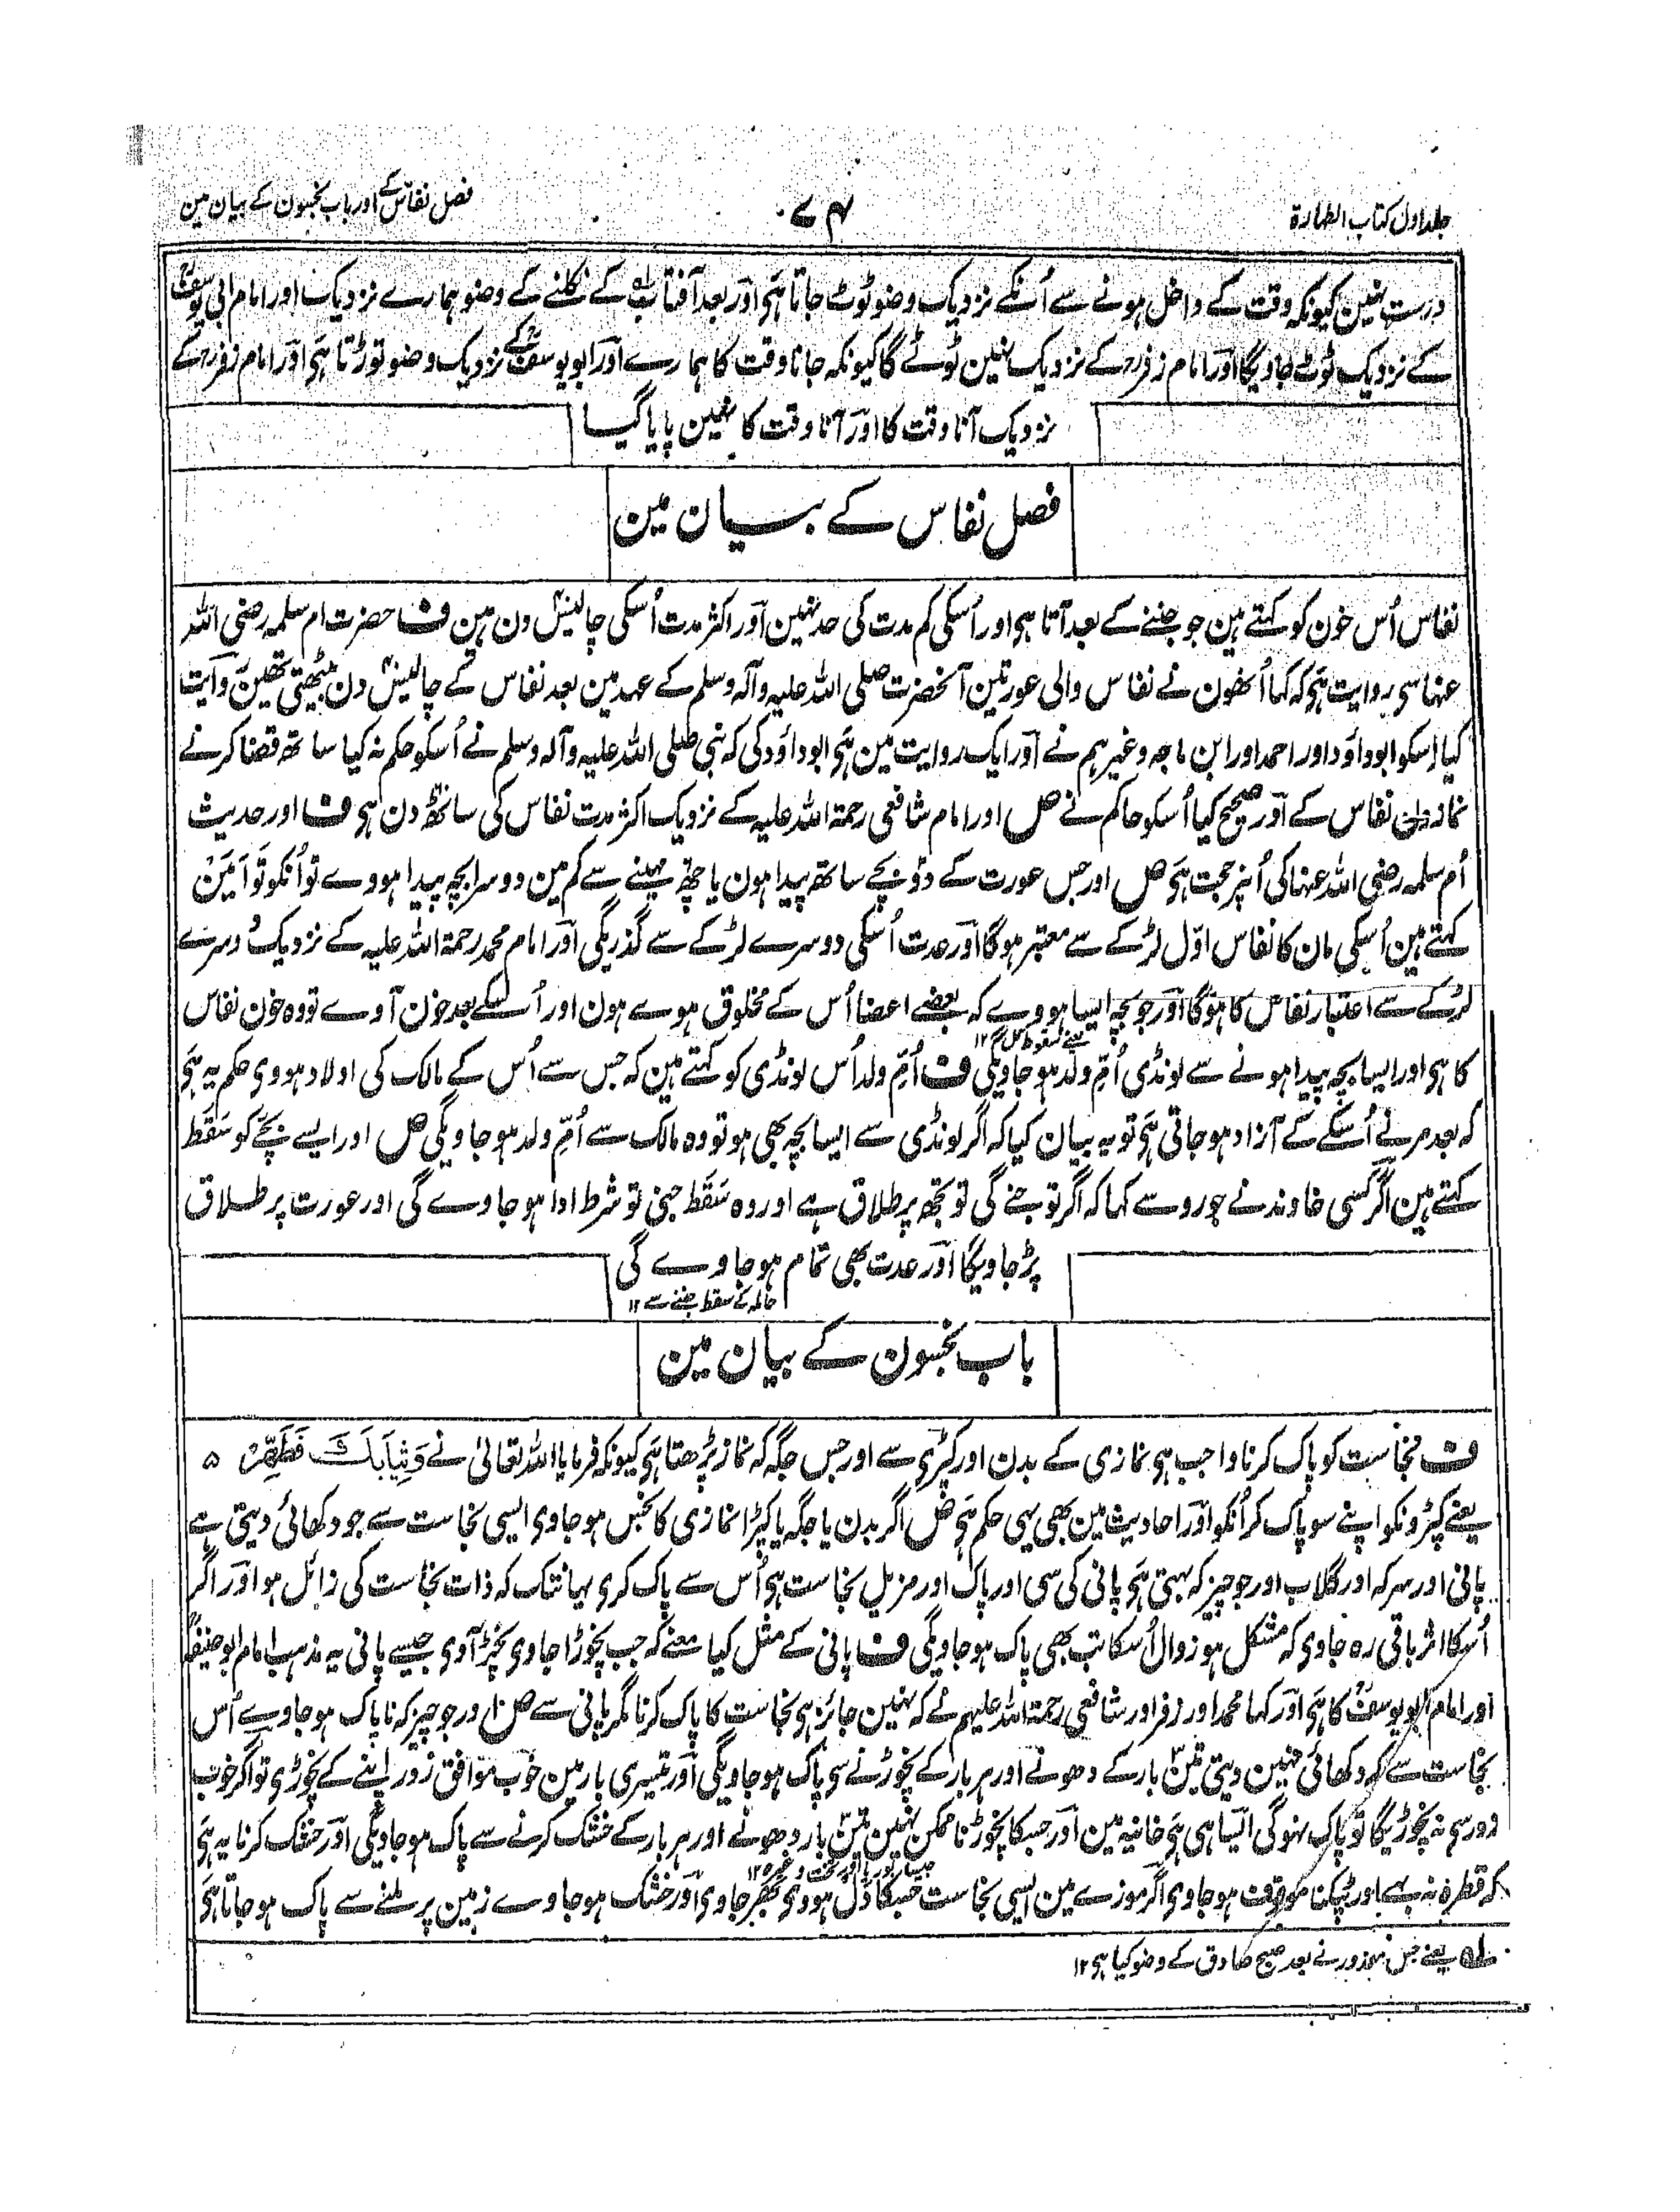 جلد اول کتاب الطہارۃ
۷۴
فصل نفاس کے اور باب نجسون کے بیان مین
درست نہین کیونکہ وقت کے داخل ہونے سے اُنکے نزدیک وضو ٹوٹ جاتا ہَی اور بعد آفتاب کے نکلنے کے وضو ہمارے نزدیک اور امام ابی یوسفؒ
کے نزدیک ٹوٹ جاویگا اور امام زفرؒ کے نزدیک نہین ٹوٹے گا کیونکہ جانا وقت کا ہمارے اور ابو یوسفؒ کے نزدیک وضو توڑتا ہَی اور امام زفرؒ کے
نزدیک آنا وقت کا اور آنا وقت کا نہین پایا گیا
فصل نفاس کے بیان مین
نفاس اُس خون کو کہتے ہین جو جننے کے بعد آتا ہی اور اُسکی کم مدت کی حد نہین اور اکثر مدت اُسکی چالیس دن ہین ف حضرت ام سلمہ رضی اللہ
عنہا سی روایت ہَی کہ کہا اُنھون نے نفاس والی عورتین آنحضرت صلی اللہ علیہ وآلہ وسلم کے عہد مین بعد نفاس کے چالیس دن بیٹھتی تھین روایت
کیا اِسکو ابو داؤد اور احمد اور ابن ماجہ وغیرہم نے اور ایک روایت مین ہَی ابو داؤد کی کہ نبی صلی اللہ علیہ وآلہ وسلم نے اُسکو حکم نہ کیا ساتھ قضا کرنے
نماز دن نفاس کے اور صحیح کیا اُسکو حاکم نے صل اور امام شافعی رحمۃ اللہ علیہ کے نزدیک اکثر مدت نفاس کی ساٹھ دن ہی ف اور حدیث
اُم سلمہ رضی اللہ عنہا کی اُنپر حجت ہَی صل اور جس عورت کے دو بچے ساتھ پیدا ہون یا چھ مہینے سے کم مین دوسرا بچہ پیدا ہووے تو اُنکو تَوأمَین
کہتے ہین اُسکی مان کا نفاس اوّل لڑکے سے معتبر ہوگا اور عدت اُسکی دوسرے لڑکے سے گذریگی اور امام محمد رحمۃ اللہ علیہ کے نزدیک دوسرے
لڑکے سے اعتبار نفاس کا ہوگا اور جو بچہ ایسا ہووے کہ بعضے اعضا اُس کے مخلوق ہوے ہون اور اُسکے بعد خون آوے تو وہ خون نفاس
کا ہی اور ایسا بچہ پیدا ہونے سے لونڈی اُمّ ولد ہو جاویگی ف اُمّ ولد اُس لونڈی کو کہتے ہین کہ جس سے اُس کے مالک کی اولاد ہووی حکم یہ ہَی
کہ بعد مرنے اُسکے کے آزاد ہو جاتی ہَی تو یہ بیان کیا کہ اگر لونڈی سے ایسا بچہ بھی ہو تو وہ مالک سے اُمّ ولد ہو جاویگی صل اور ایسے بچّے کو سَقَط
کہتے ہین اگر کسی خاوند نے جورو سے کہا کہ اگر تو جنے گی تو تجھ پر طلاق ہے اور وہ سَقَط جنی تو شرط ادا ہو جاوے گی اور عورت پر طلاق
پڑ جاویگا اور عدت بھی تمام ہو جاوے گی
حاملہ کے سقط جننے سے ۱۲
باب نجسون کے بیان مین
ف نجاست کو پاک کرنا واجب ہی نمازی کے بدن اور کپڑی سے اور جس جگہ کہ نماز پڑھتا ہَی کیونکہ فرمایا اللہ تعالیٰ نے وَثِیَابَكَ فَطَهِّرْ ہ
یعنے کپڑونکو اپنے سو پاک کر اُنکو اور احادیث مین بھی یہی حکم ہَی صل اگر بدن یا جگہ یا کپڑا نمازی کا نجس ہو جاوی ایسی نجاست سے جو دکھائی دیتی ہے
پانی اور سرکہ اور گلاب اور جو چیز کہ بہتی ہَی پانی کی سی اور پاک اور مزیل نجاست ہی اُس سے پاک کری یہانتک کہ ذات نجاست کی زائل ہو اور اگر
اُسکا اثر باقی رہ جاوی کہ مشکل ہو زوال اُسکا تب بھی پاک ہو جاویگی ف پانی کے مثل کیا معنے کہ جب نچوڑا جاوی نچڑ آوی جیسے پانی یہ مذہب امام ابو حنیفہؒ
اور امام ابو یوسفؒ کا ہَی اور کہا محمد اور زفر اور شافعی رحمۃ اللہ علیہم نے کہ نہین جائز ہی نجاست کا پاک کرنا مگر پانی سے صل اور جو چیز کہ ناپاک ہو جاوے اُس
نجاست سے کہ دکھائی نہین دیتی تین بار کے دھونے اور ہر بار کے نچوڑنے سی پاک ہو جاویگی اور تیسری بار مین خوب موافق زور اپنے کے نچوڑی تو اگر خوب
زور سی نہ نچوڑیگا تو پاک نہوگی ایسا ہی ہَی خانیہ مین اور جسکا نچوڑنا ممکن نہین تین بار دھونے اور ہر بار کے خشک کرنے سے پاک ہو جاویگی اور خشک کرنا یہ ہَی
کہ قطرہ نہ بہے اور ٹپکنا موقوف ہو جاوی اگر موزے مین ایسی نجاست جسکا دَل ہووی بھر جاوی اور خشک ہو جاوے زمین پر ملنے سے پاک ہو جاتا ہَی
لہ یعنے جس معذور نے بعد صبح صادق کے وضو کیا ہی ۱۲